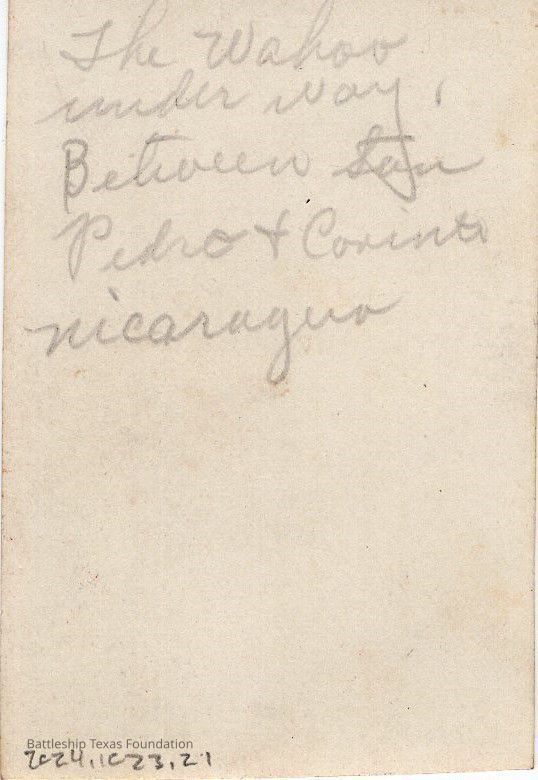 The Wahoo
under way,
Between San
Pedro & Corinto
nicaragua
Battleship Texas Foundation
2024.1023.21